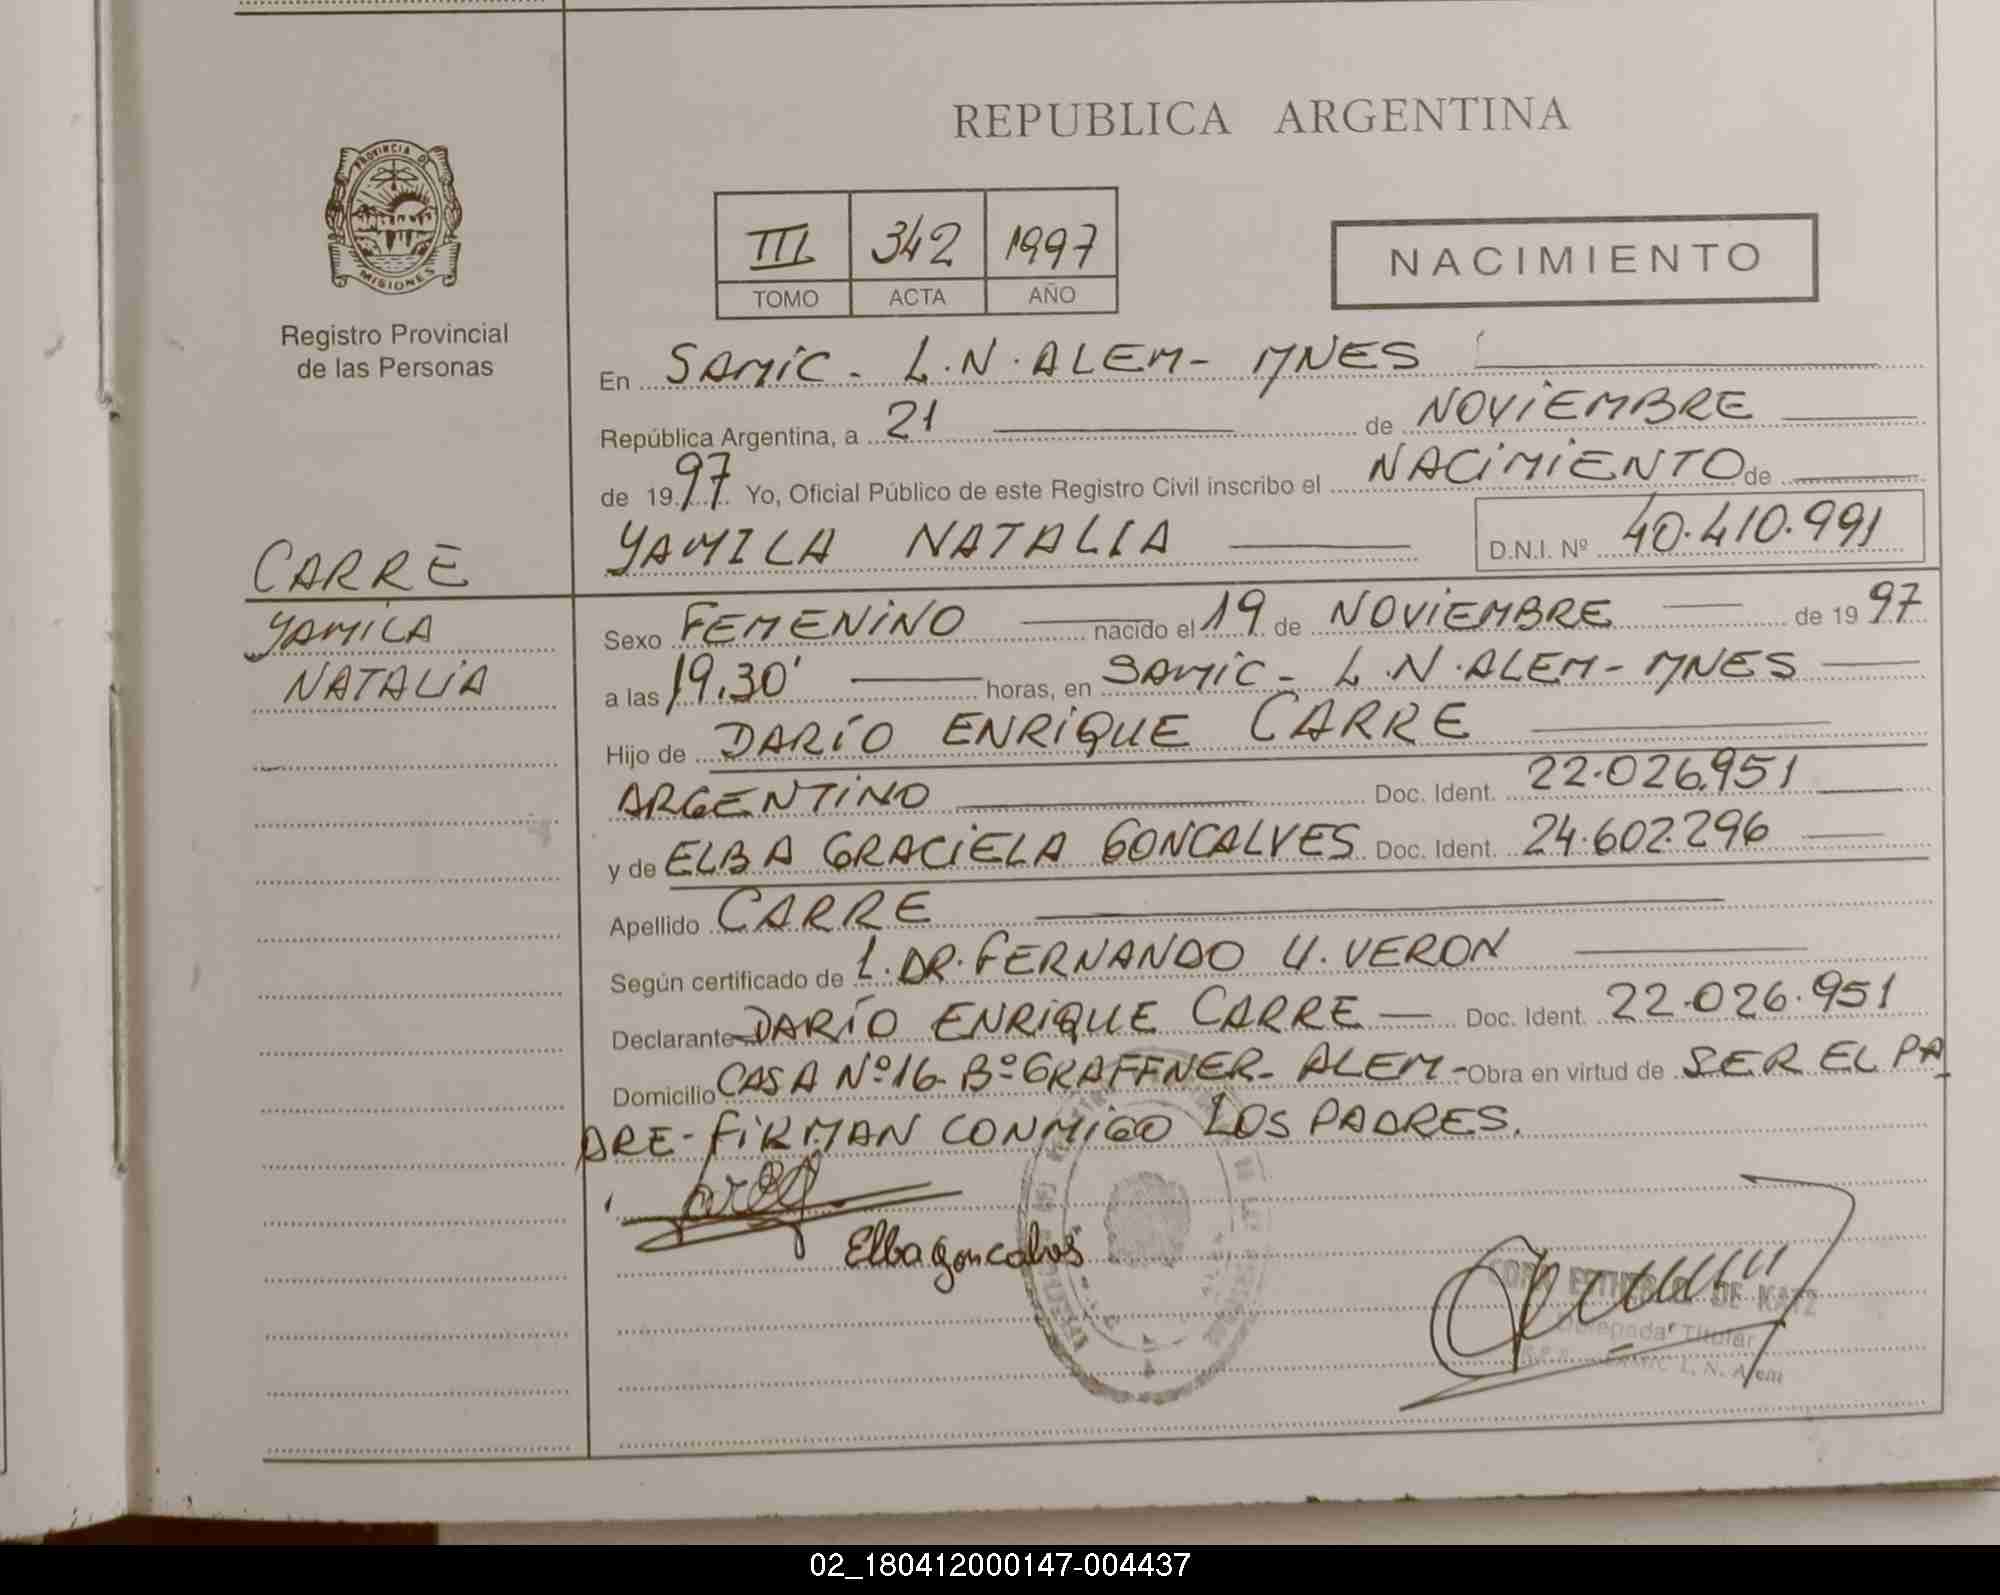 REPUBLICA ARGENTINA
PROVINCIA DE
MISIONES
Registro Provincial
de las Personas
III 342 1997
TOMO ACTA AÑO
NACIMIENTO
En SAMIC - L.N. ALEM - MNES
República Argentina, a 21 de NOVIEMBRE
de 1997 Yo, Oficial Público de este Registro Civil inscribo el NACIMIENTO de
YAMILA NATALIA D.N.I. Nº 40.410.991
CARRE
YAMILA
NATALIA
Sexo FEMENINO nacido el 19 de NOVIEMBRE de 1997
a las 19.30' horas, en SAMIC - L.N. ALEM - MNES
Hijo de DARÍO ENRIQUE CARRE
ARGENTINO Doc. Ident. 22.026.951
y de ELBA GRACIELA GONCALVES Doc. Ident. 24.602.296
Apellido CARRE
Según certificado de 1. DR. FERNANDO U. VERON
Declarante DARÍO ENRIQUE CARRE Doc. Ident. 22.026.951
Domicilio CASA Nº 16 - Bº GRAFFNER - ALEM - Obra en virtud de SER EL PA
DRE - FIRMAN CONMIGO LOS PADRES.
Elba Goncalves
DE KATZ
Delegada Titular
L. N. Alem
02_180412000147-004437